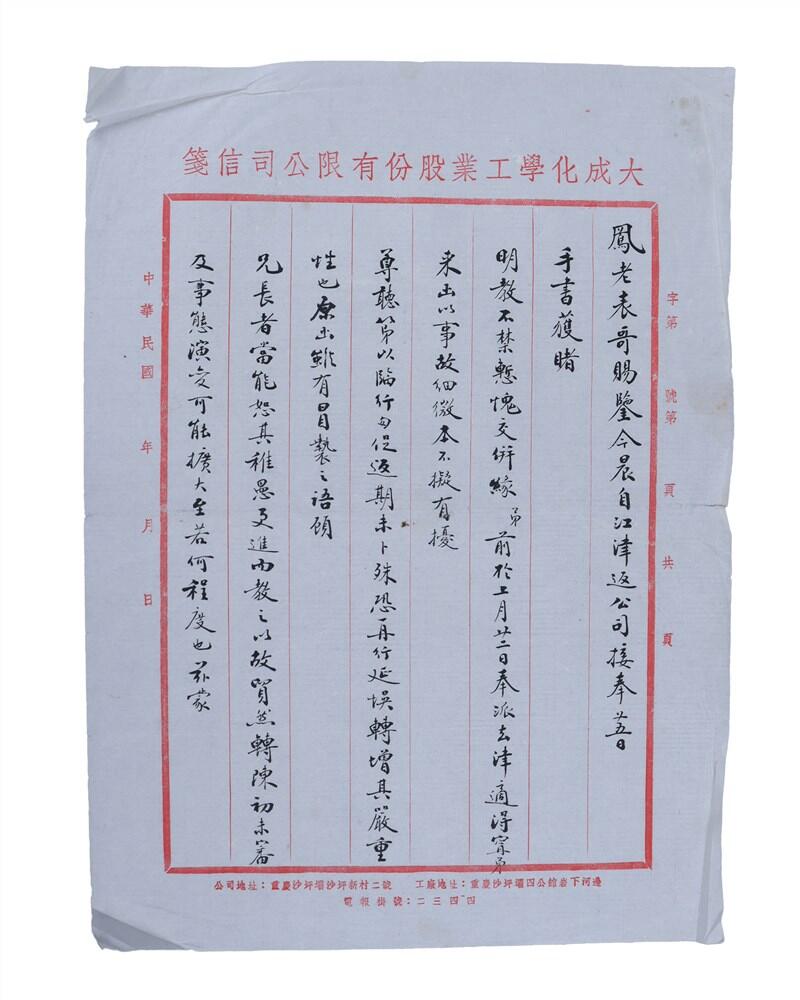 大成化學工業股份有限公司信箋
字第 號第 頁 共 頁
鳳老表哥賜鑒今晨自江津返公司接奉廿五日
手書獲睹
明教不禁慙愧交併緣弟前於上月廿二日奉派去津適得甯弟
來函以事故細微本不擬有擾
尊聽第以臨行匆促返期未卜殊恐再行延悞轉增其嚴重
性也原函雖有冒褻之語頋
兄長者當能恕其稚愚更進而教之以故貿然轉陳初未審
及事態演变可能擴大至若何程度也茲蒙
中華民國 年 月 日
公司地址：重慶沙坪壩沙坪新村二號 工廠地址：重慶沙坪壩四公館岩下河邊
電報掛號：二三四四